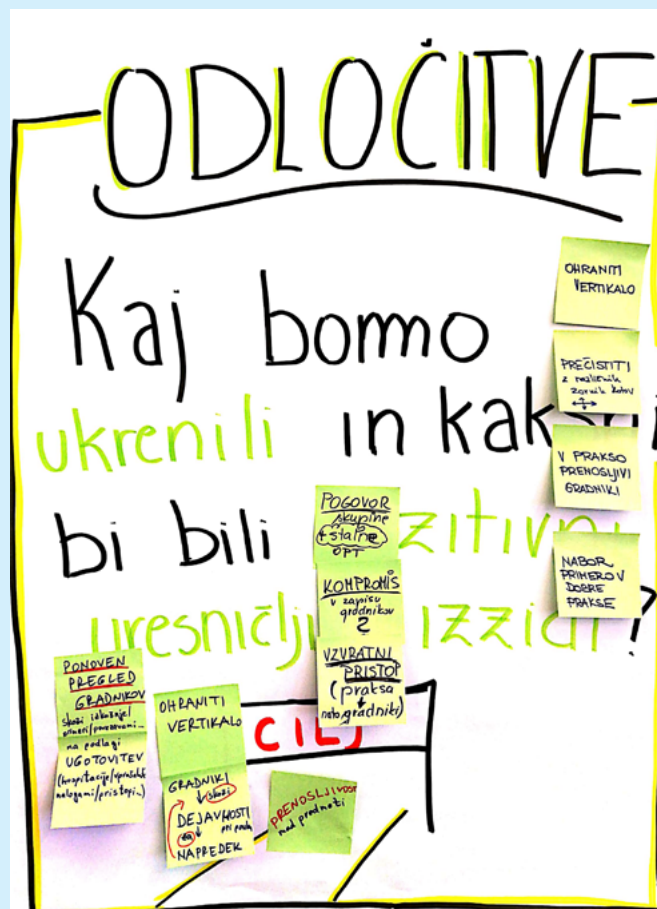 ODLOČITVE
Kaj bomo
ukrenili in kakšni
bi bili
zitivni
uresničlji izzidi?
OHRANITI
VERTIKALO
PREČISTITI
z različnih
zornih kotov
V PRAKSO
PRENOSLJIVI
GRADNIKI
NABOR
PRIMEROV
DOBRE
PRAKSE
POGOVOR
skupine
+ stalne
OPT
KOMPROMIS
v zapisu
gradnikov
?
VZVRATNI
PRISTOP
(praksa
nato gradniki)
PONOVEN
PREGLED
GRADNIKOV
skozi
na podlagi
UGOTOVITEV
(hospitacije/
nalogami/pristopi...)
OHRANITI
VERTIKALO
GRADNIKI
skozi
DEJAVNOSTI
za
NAPREDEK
CILJ
PRENOSLJIVOST
med predmeti